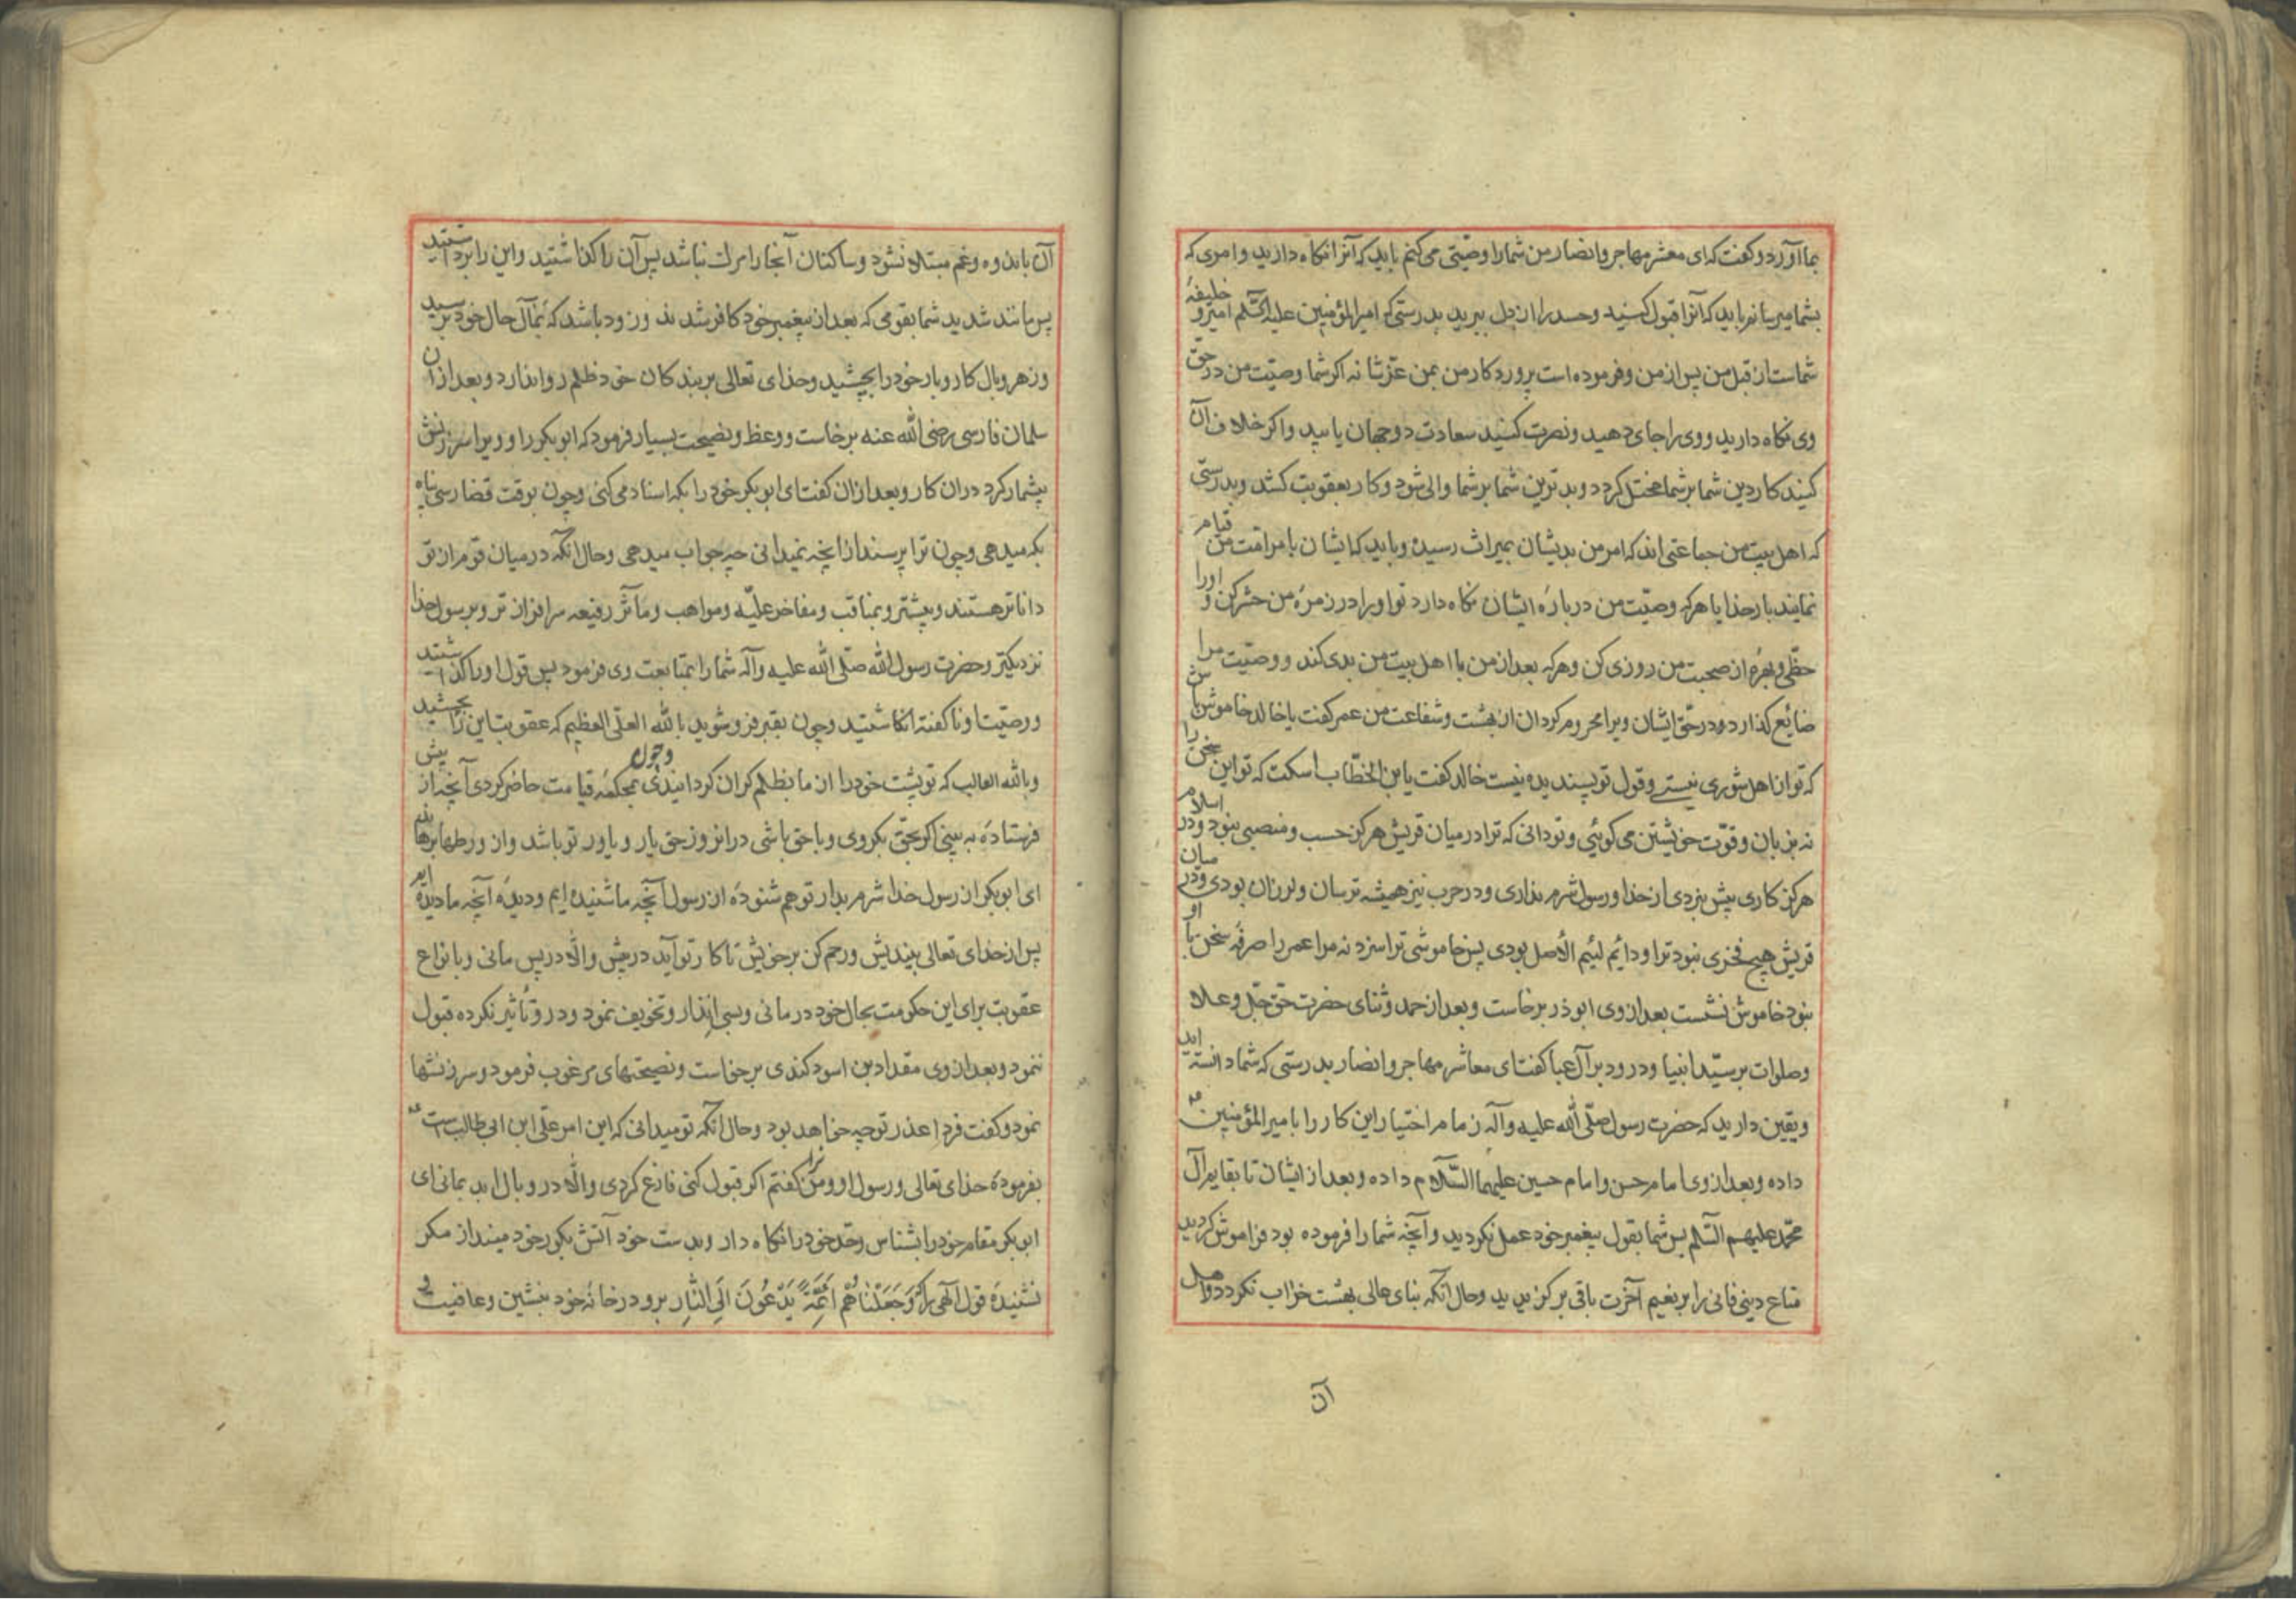 بما آورد و کفت که ای معشر مهاجر و انصار من شما را وصیّتی می کنم باید که آنرا نکاه دارید و امری که
بشما میرسانم باید که آنرا قبول کنید و حسد را از دل ببرید بدرستی که امیر المؤمنین علیه السّلم امیر و خلیفهٔ
شماست از قبل من پس از من و فرموده است پروردکار من بمن عزّ شانه اکر شما وصیّت من در حقّ
وی نکاه دارید و وی را جای دهید و نصرت کنید سعادت دو جهان یابید و اکر خلاف آن
کنید کار دین شما بر شما مختل کردد و بدترین شما بر شما والی شود و کار بعقوبت کشد و بدرستی
که اهل بیت من جماعتی اند که امر من بدیشان بمیراث رسیده و باید که ایشان بامر امّت من قیام
نمایند بار خدایا هر که وصیّت من در بارهٔ ایشان نکاه دارد تو او را در زمرهٔ من حشر کن و او را
حظّی و بهرهٔ از صحبت من روزی کن و هر که بعد از من با اهل بیت من بدی کند و وصیّت مرا
ضایع کذارد و در حقّ ایشان ویرا محروم کردان از بهشت و شفاعت من عمر کفت یا خالد خاموش باش
که تو از اهل شوری نیستی و قول تو پسندیده نیست خالد کفت یا بن الخطّاب اسکت که تو این سخن را
نه بزبان و قوّت خویشتن می کوئی و تو دانی که ترا در میان قریش هرکز حسب و منصبی نبود و در اسلام
هرکز کاری پیش نبردی از خدا و رسول شرم نداری و در حرب نیز همیشه ترسان و لرزان بودی و در میان
قریش هیچ فخری نبود ترا و دائم لئیم الأصل بودی پس خاموشی ترا سزد نه مرا عمر را صرفهٔ سخن با او
نبود خاموش نشست بعد از وی ابوذر برخاست و بعد از حمد و ثنای حضرت حقّ جلّ و علا
و صلوات بر سیّد انبیا و درود بر آل عبا کفت ای معاشر مهاجر و انصار بدرستی که شما دانسته اید
و یقین دارید که حضرت رسول صلّی الله علیه وآله زمام اختیار این کار را با میر المؤمنین ع
داده و بعد از وی امام حسن و امام حسین علیهما السّلام داده و بعد از ایشان تا بقایم آل
محمّد علیهم السّلم پس شما بقول پیغمبر خود عمل نکردید و آنچه شما را فرموده بود فراموش کردید
متاع دینی فانی را بر نعیم آخرت باقی برکزیدید و حال آنکه بنای عالی بهشت خراب نکردد و اهل
آن
آن باندوه و غم مبتلا نشود و ساکنان آنجا را مرک نباشد پس آن را کذاشتید و این را برداشتید
پس مانند شدید شما بقومی که بعد از پیغمبر خود کافر شدند و زود باشد که بمآل حال خود برسید
و زهر وبال کار و بار خود را بچشید و خدای تعالی بر بندکان خود ظلم روا ندارد و بعد از آن
سلمان فارسی رضی الله عنه برخاست و وعظ و نصیحت بسیار فرمود که ابوبکر را و ویرا سرزنش
بیشمار کرد دران کار و بعد ازان کفت ای ابوبکر خود را بکه اسناد می کنی و چون بوقت قضا رسی پناه
بکه میدهی و چون ترا پرسند از آنچه نمیدانی چه جواب میدهی و حال آنکه در میان قوم از تو
داناتر هستند و بیشتر و بمناقب و مفاخر علیّه و مواهب و مآثر رفیعه سرافرازتر و برسول خدا
نزدیکتر و حضرت رسول الله صلّی الله علیه وآله شما را بمتابعت وی فرمود پس قول او را کذاشتید
و وصیّت او ناکفته انکاشتید و چون بقبر فرو شوید بالله العلّی العظیم که عقوبت این را بچشید
و بالله الغالب که تو پشت خود را از ما بظلم کران کردانیدی و چون بمحکمهٔ قیامت حاضر کردی آنچه از پیش
فرستادهٔ به بینی اکر بحقّ بکروی و با حق باشی در انروز حق یار و یاور تو باشد و از ورطها برهاند
ای ابوبکر از رسول خدا شرم بدار تو هم شنودهٔ از رسول آنچه ما شنیده ایم و دیدهٔ آنچه ما دیده ایم
پس از خدای تعالی بیندیش و رحم کن بر خویش تا کار تو آید در پیش والّا در پس مانی و بانواع
عقوبت برای این حکومت بحال خود درمانی و بسی انذار و تخویف نمود و در و تأثیر نکرده قبول
ننمود و بعد از وی مقداد بن اسود کندی برخاست و نصیحتهای مرغوب فرمود و سرزنشها
نمود و کفت فردا عذر تو چه خواهد بود و حال آنکه تو میدانی که این امر علّی ابن ابی طالب است ع
بفرمودهٔ خدای تعالی و رسول او و من ترا کفتم اکر قبول کنی فارغ کردی والّا در وبال ابد بمانی ای
ابوبکر مقام خود را بشناس و حّد خود را نکاه دار و بدست خود آتش بکور خود مینداز مکر
نشنیدهٔ قول آلهی را که وَجَعَلْنَاهُم اَئِمَّةً یَدْعُونَ اِلَی النَّارِ برو در خانهٔ خود بنشین و عافیت